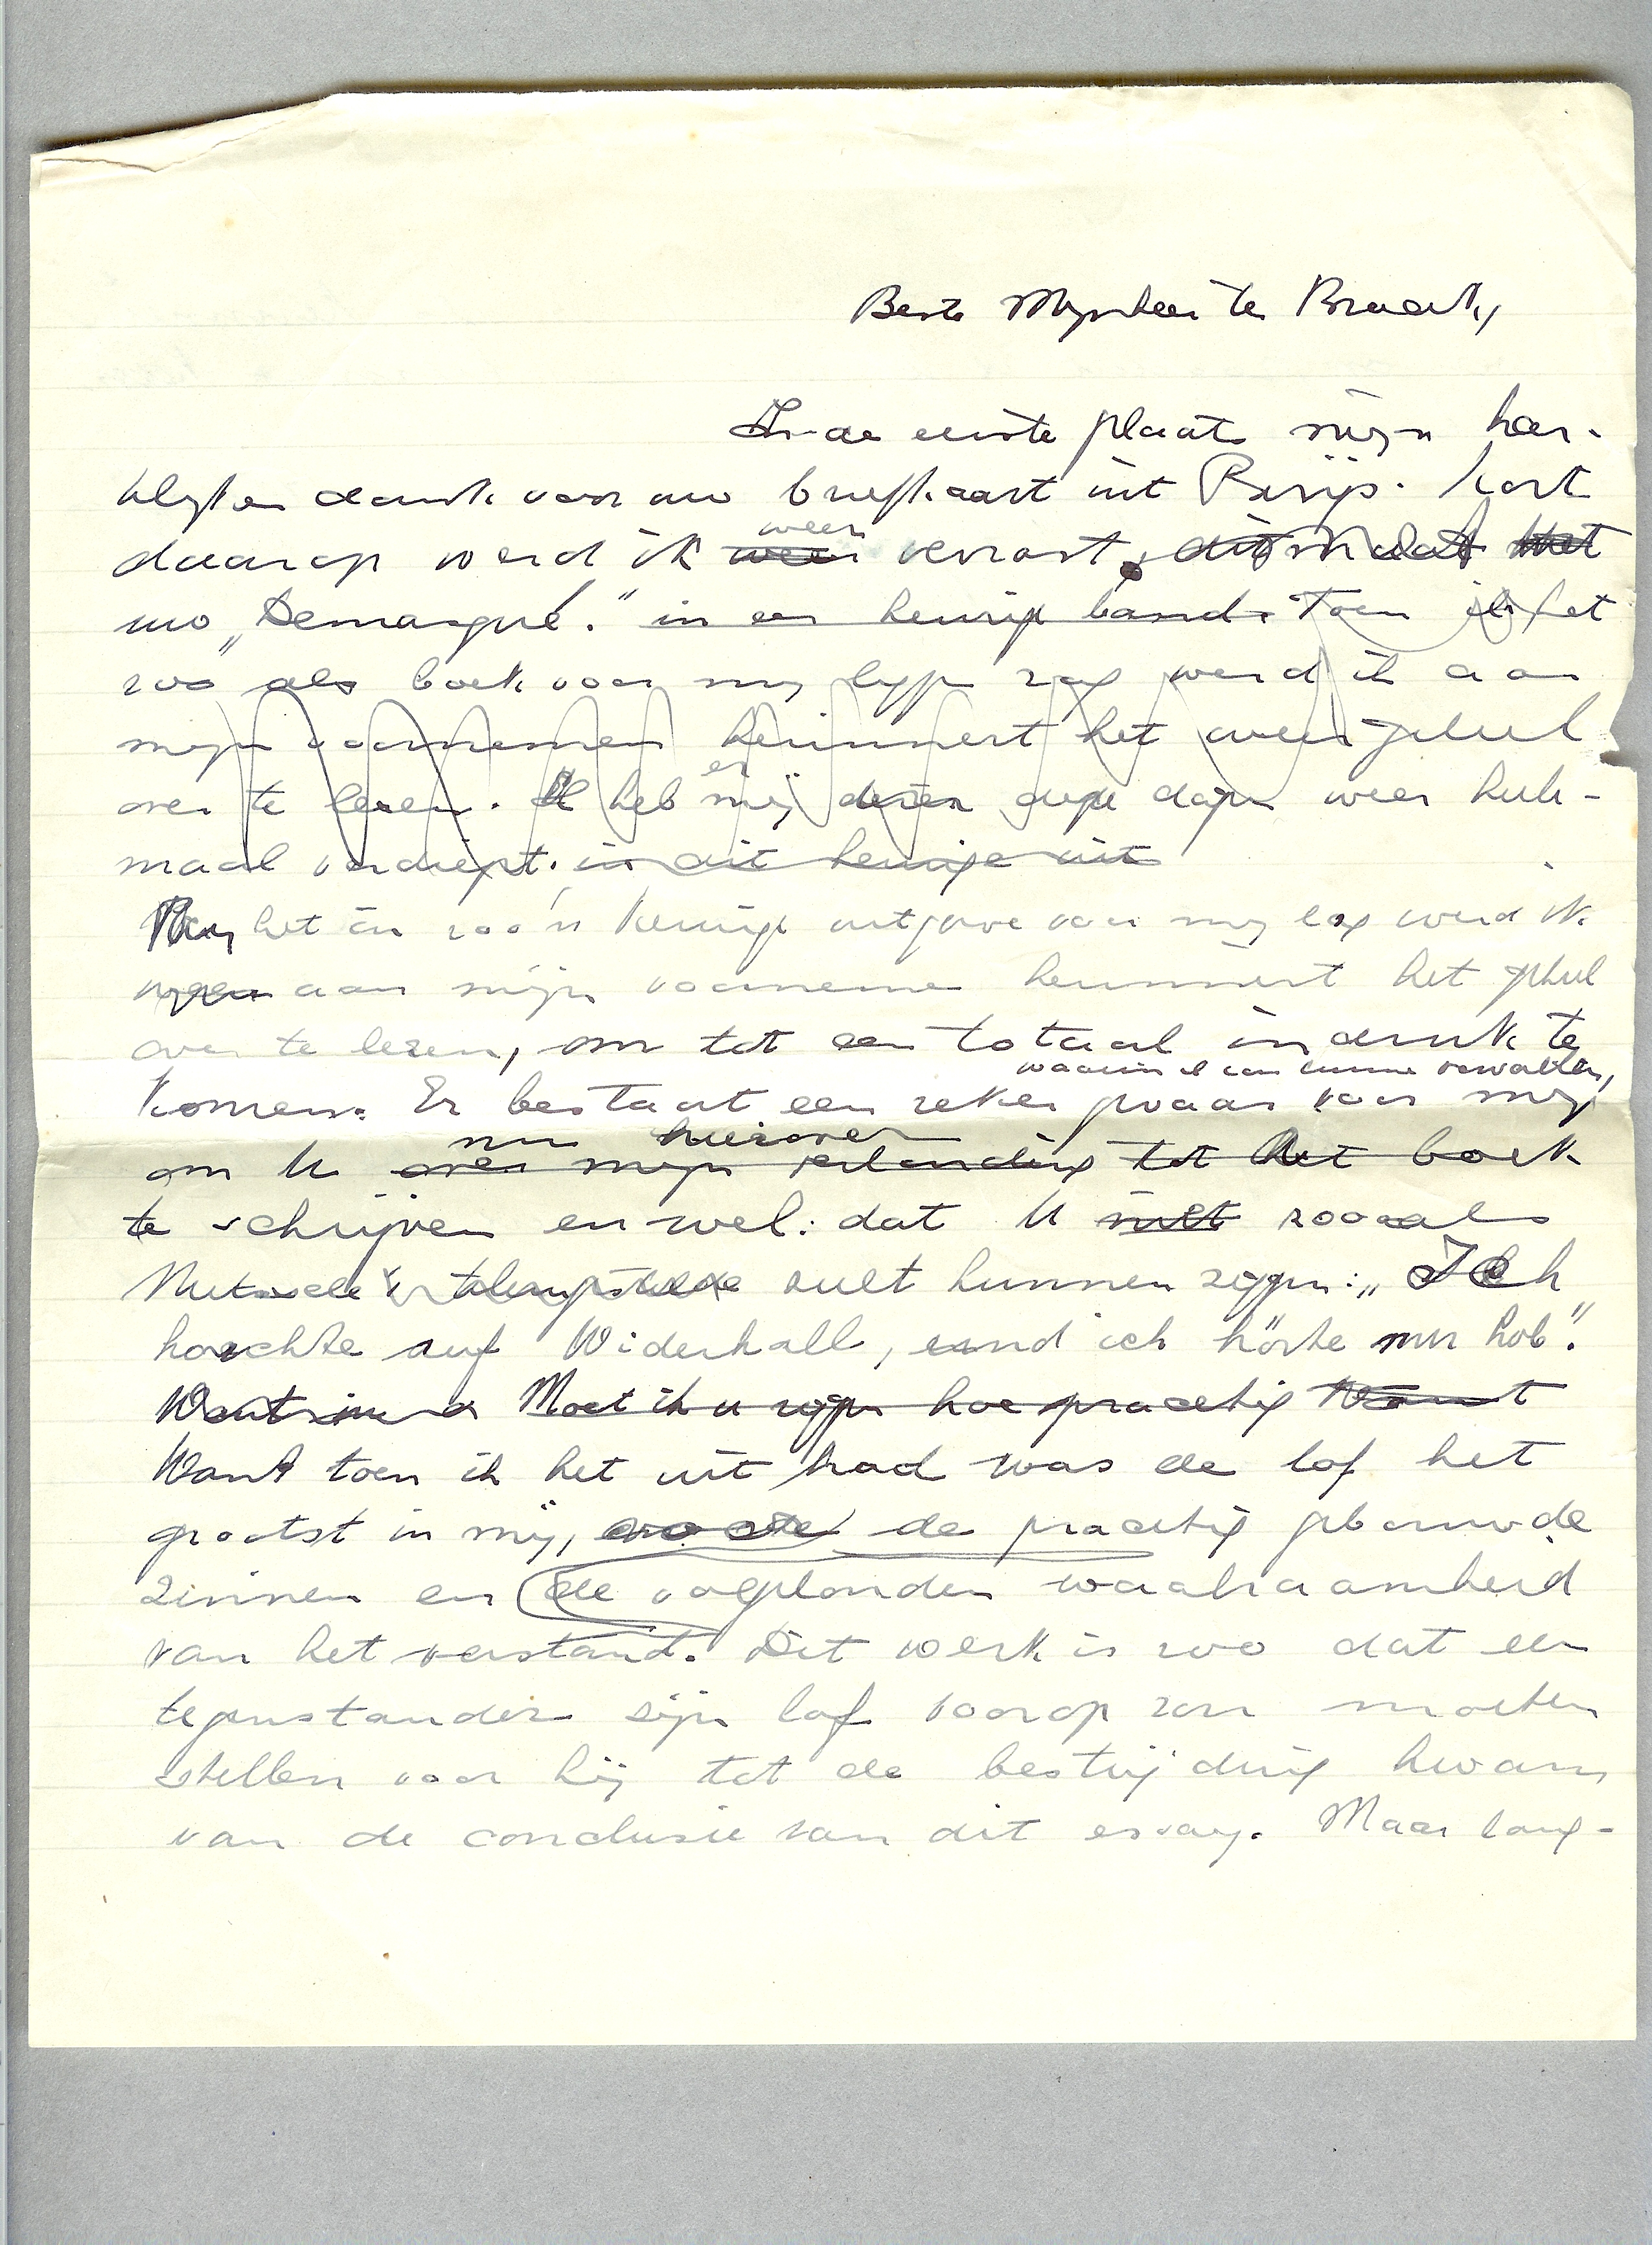 Beste Mijnheer ter Braak,
In de eerste plaats mijn har-
telijken dank voor uw briefkaart uit Parijs. Kort
weer
daarop werd ik weer verrast, ditmaal met
uw „Demasqué." in een keurige band. Toen ik het
zoo als boek voor mij liggen zag werd ik aan
mijn voornemen herinnert het weer geheel
er
over te lezen. Ik heb mij dezer dagen weer hele-
maal verdiept. in dit keurige uit
Nu het in zoo'n keurige uitgave voor mij lag werd ik
weer aan mijn voornemen herinnert het geheel
over te lezen, om tot een totaal indruk te
waarin ik kan vervallen,
komen. Er bestaat een zeker gevaar voor mij
nu hierover
om U over mijn verhouding tot het boek
te schrijven en wel: dat U niet zooals
Nietzsche zult kunnen zeggen: „Ich
horchte auf Widerhall, und ich hörte nur Lob".
Want Moet ik u zeggen hoe prachtig Want
Want toen ik het uit had was de lof het
grootst in mij, de prachtig gebouwde
zinnen en de waakzaamheid
van het verstand. Dit werk is zoo dat een
tegenstander zijn lof voorop zou moeten
stellen voor hij tot de bestrijding kwam
van de conclusie van dit essay. Maar lang-